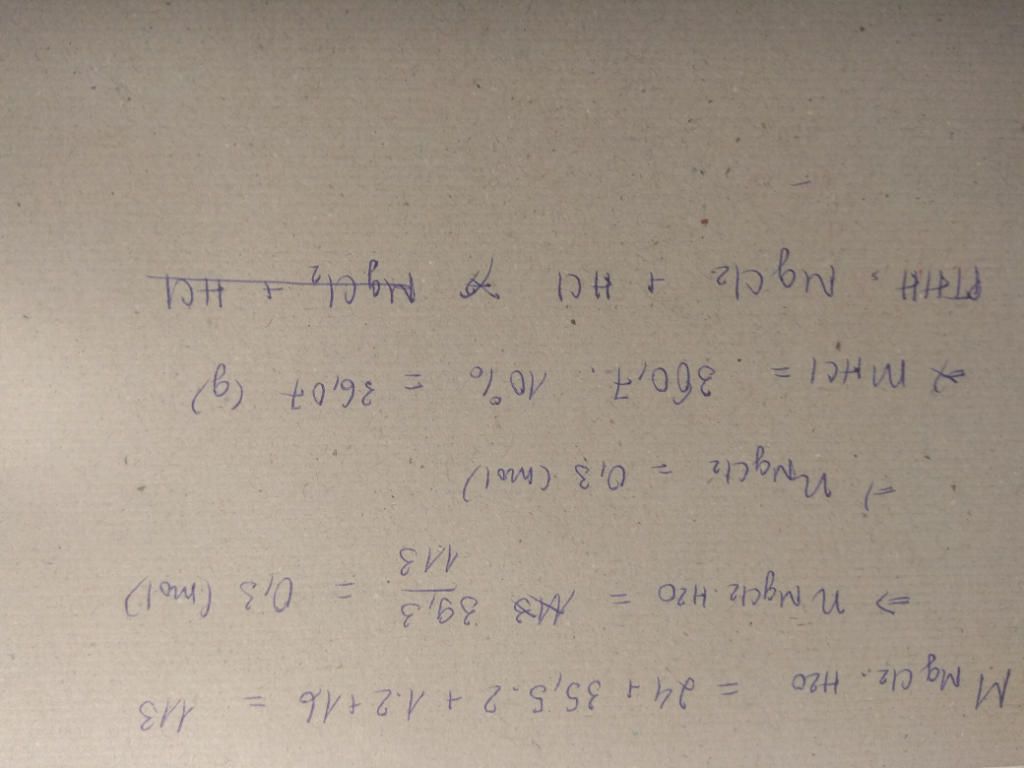 M MgCl2.H2O = 24 + 35,5.2 + 1.2 + 16 = 113
=> n MgCl2.H2O = 39,3/113 = 0,3 (mol)
=> nMgCl2 = 0,3 (mol)
=> mHCl = 360,7. 10% = 36,07 (g)
PTHH: MgCl2 + HCl MgCl2 + HCl